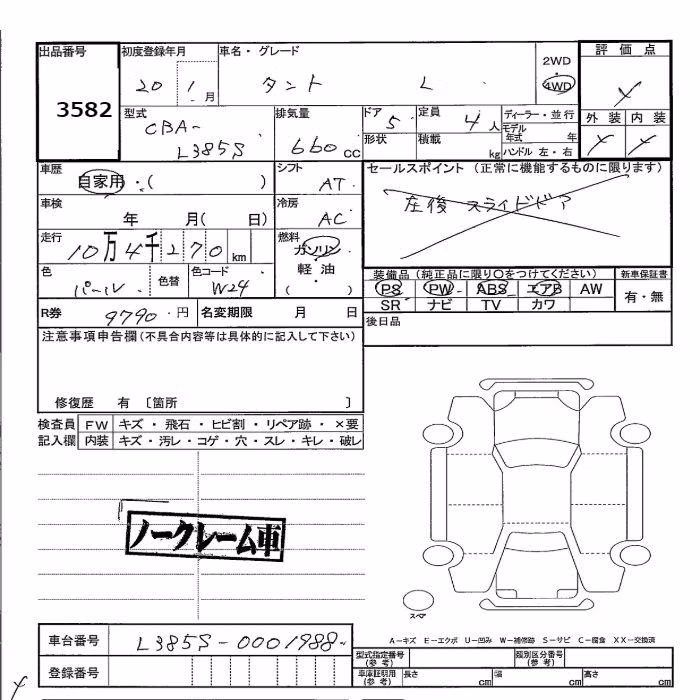 出品番号 初度登録年月 車名・グレード 評価点
3582 20 1月 タント L 2WD 4WD
型式 排気量 ドア 定員 ディーラー・並行 外装 内装
CBA-L385S 660cc 5 4人 モデル年式 年
形状 積載 kg ハンドル 左・右
車歴 シフト セールスポイント (正常に機能するものに限ります)
自家用・( ) AT 左後 スライドドア
車検 冷房
年 月( 日) AC
走行 燃料
10万4千270km ガソリン・軽油・( )
色 色替 色コード 装備品(純正品に限り〇をつけてください) 新車保証書
パール W24 PS PW ABS エアB AW 有・無
SR ナビ TV カワ
R券 9790・円 名変期限 月 日 後日品
注意事項申告欄(不具合内容等は具体的に記入して下さい)
修復歴 有 〔箇所 〕
検査員 FW キズ・飛石・ヒビ割・リペア跡・×要
記入欄 内装 キズ・汚レ・コゲ・穴・スレ・キレ・破レ
ノークレーム車
スペア
車台番号 L385S-0001988
A-キズ E-エクボ U-凹み W-補修跡 S-サビ C-腐食 XX-交換済
登録番号
型式指定番号(参考) 類別区分番号(参考)
車庫証明用(参考) 長さ cm 幅 cm 高さ cm